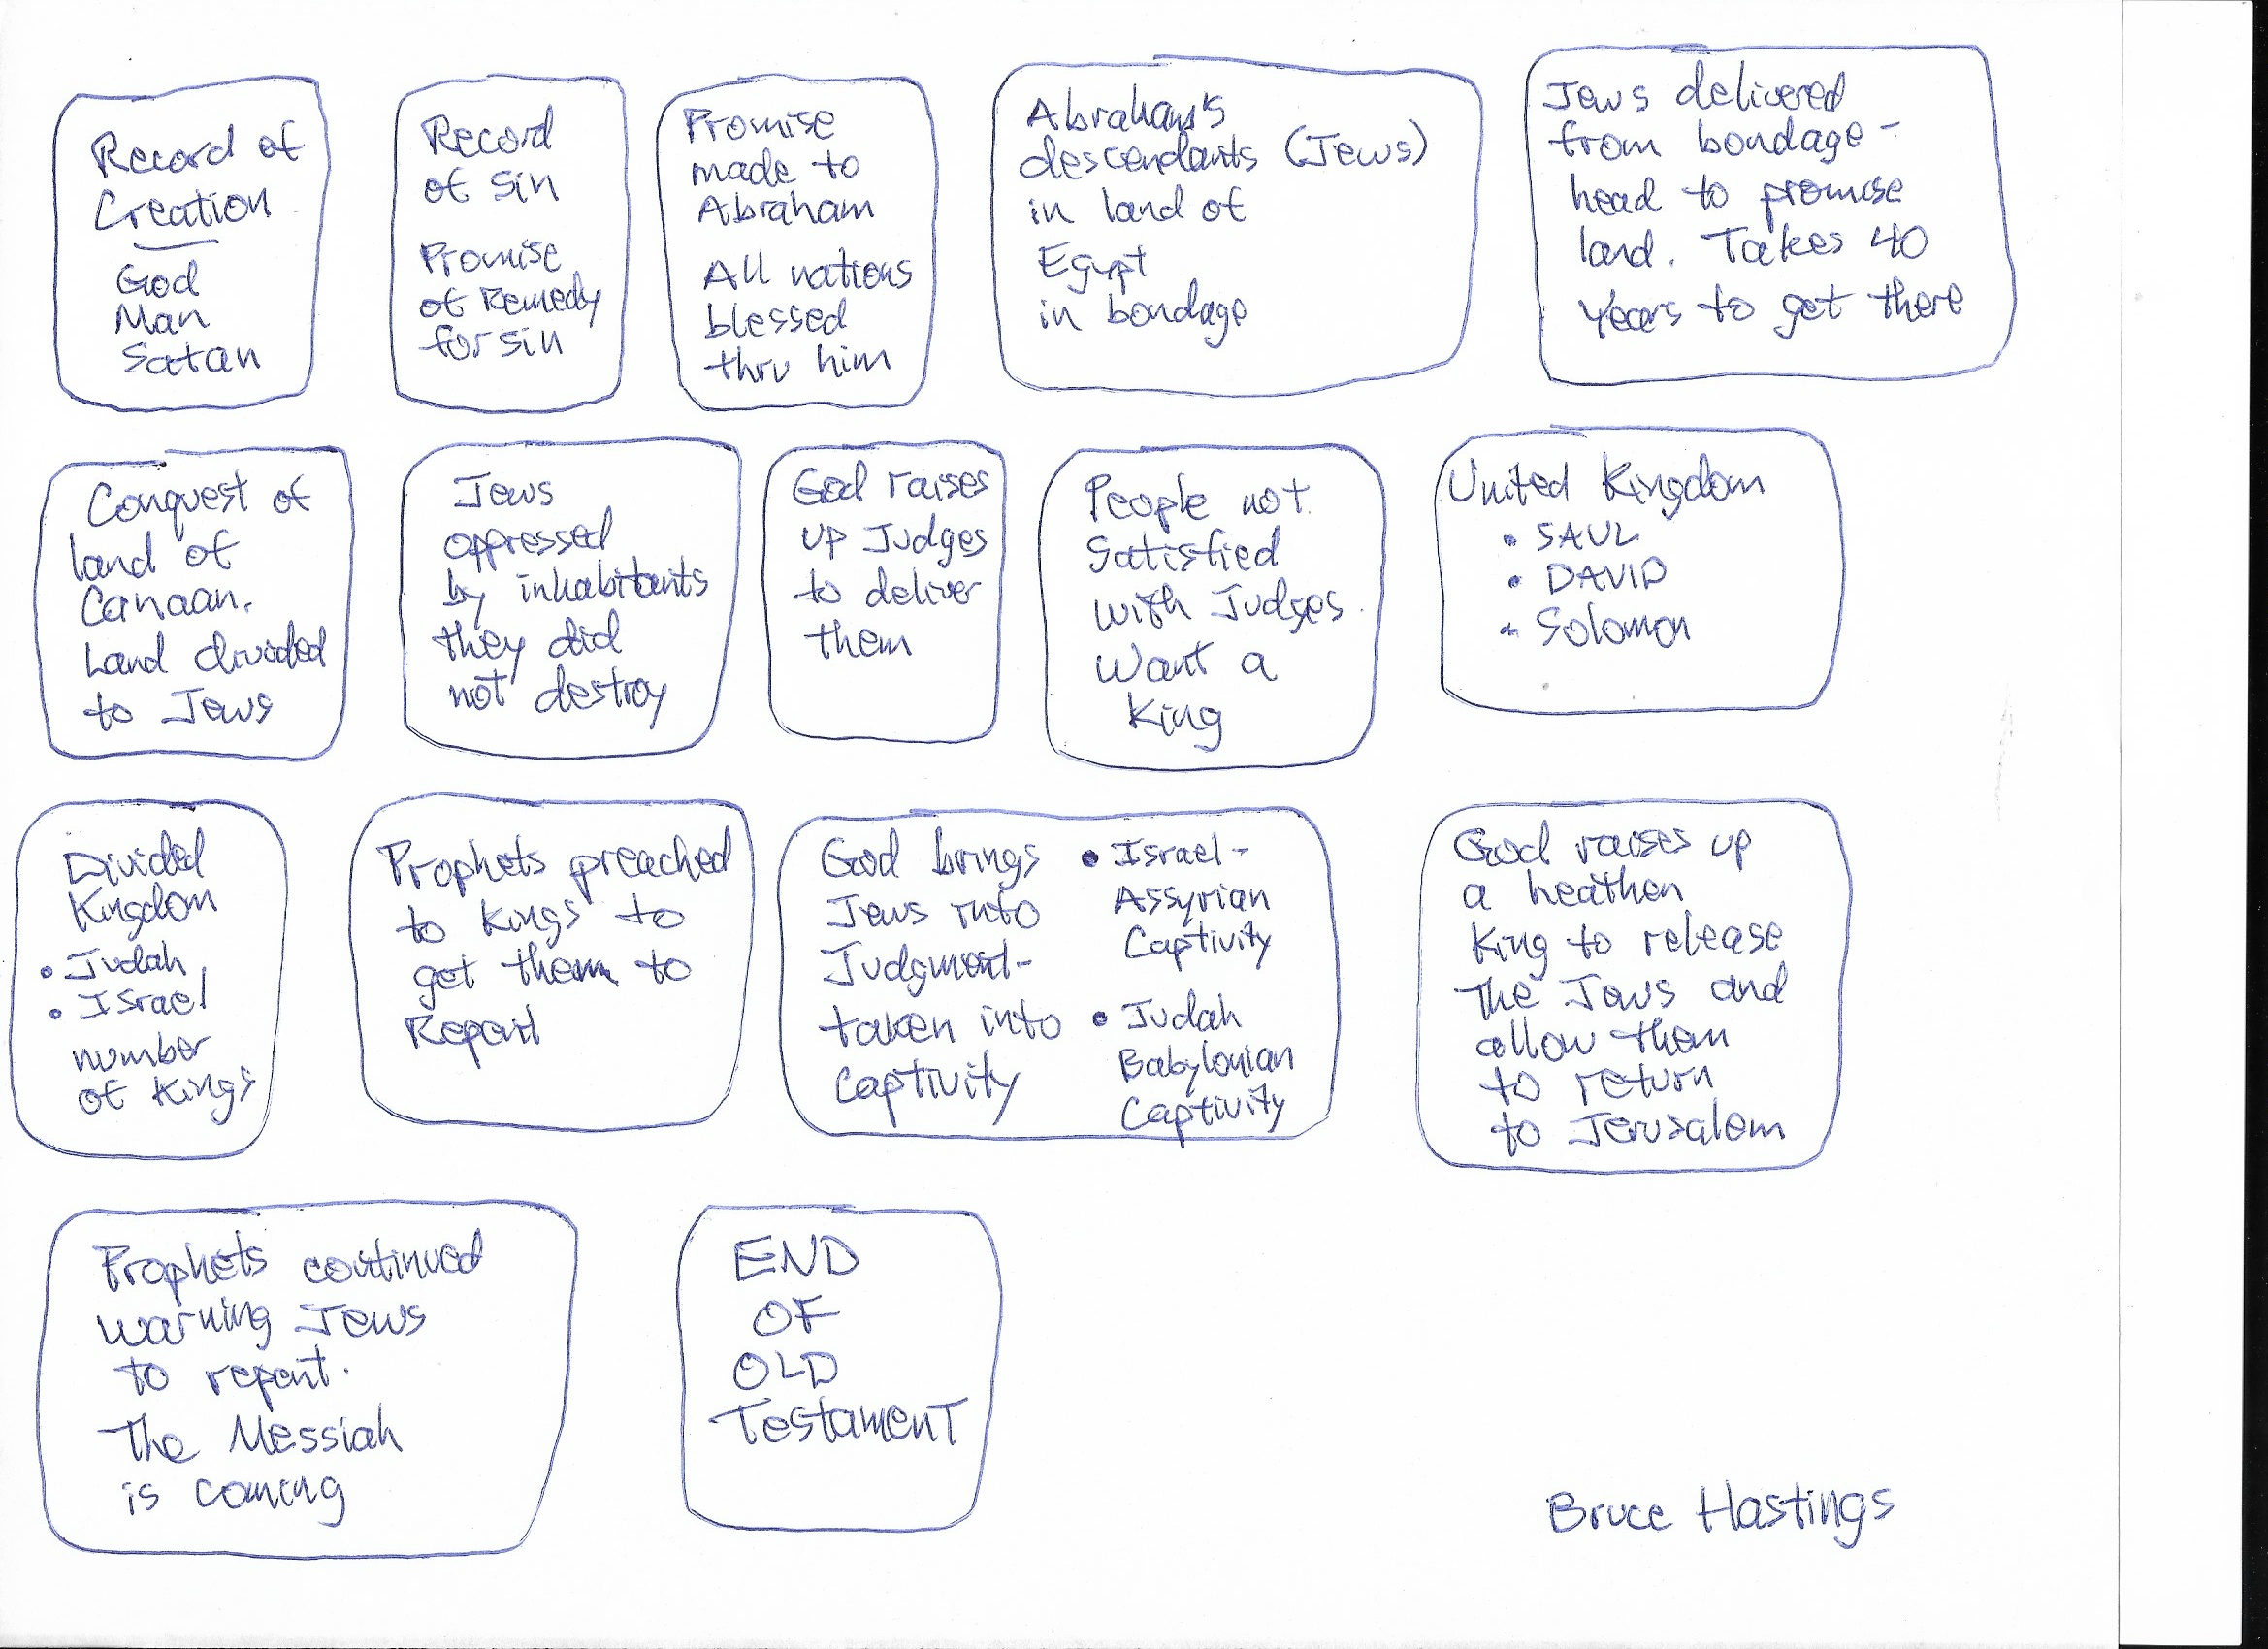 Record of
Creation
God
Man
Satan
Record
of sin
Promise
of Remedy
for sin
Promise
made to
Abraham
All nations
blessed
thru him
Abraham's
descendants (Jews)
in land of
Egypt
in bondage
Jews delivered
from bondage -
head to promise
land. Takes 40
years to get there
Conquest of
land of
Canaan.
Land divided
to Jews
Jews
oppressed
by inhabitants
they did
not destroy
God raises
up Judges
to deliver
them
People not
Satisfied
with Judges.
Want a
King
United Kingdom
• SAUL
• DAVID
• Solomon
Divided
Kingdom
• Judah
• Israel
number
of Kings
Prophets preached
to Kings to
get them to
Repent
God brings
Jews into
Judgment-
taken into
captivity
• Israel-
Assyrian
Captivity
• Judah
Babylonian
Captivity
God raises up
a heathen
King to release
The Jews and
allow them
to return
to Jerusalem
Prophets continued
warning Jews
to repent.
The Messiah
is coming
END
OF
OLD
TestamenT
Bruce Hastings